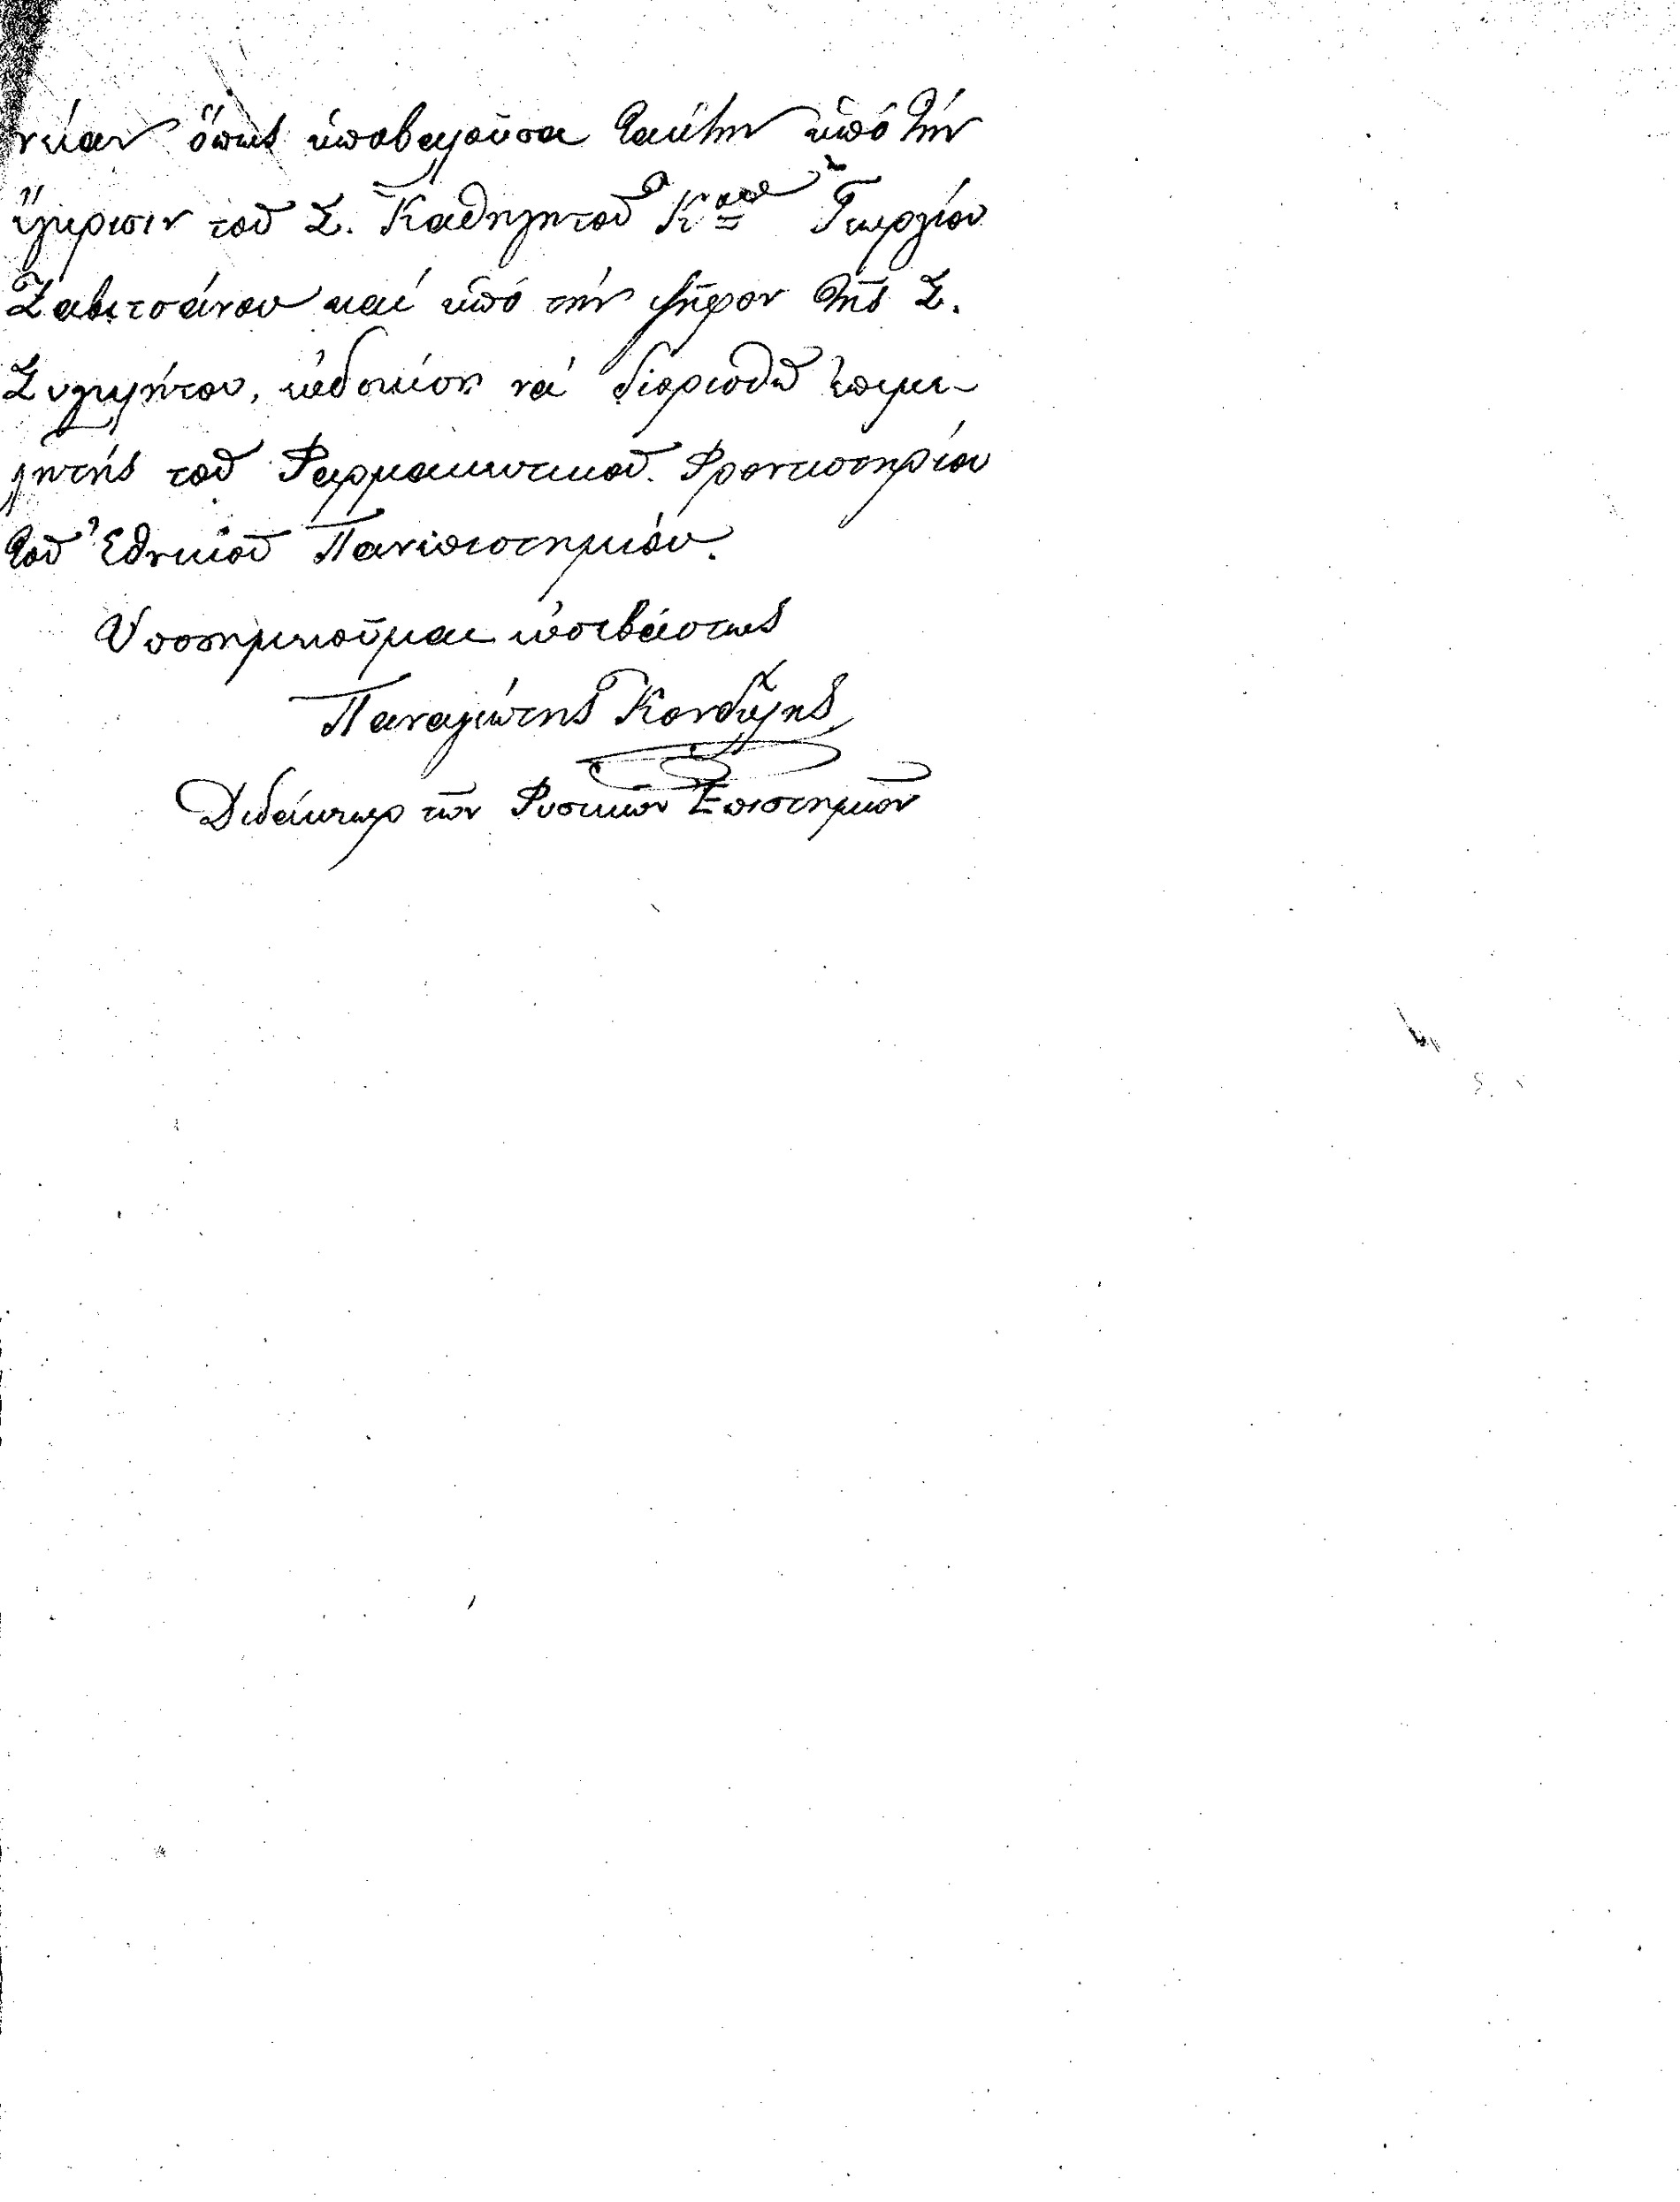 νείαν ὅπως ὑποβαλοῦσα ταύτην ὑπό τήν
ἔγκρισιν τοῦ Σ. Καθηγητοῦ Κου Γεωργίου
Ζαβιτσάνου καί ὑπό τήν ψῆφον τῆς Σ.
Συγκλήτου, εὐδοκίση νά διορισθῶ ἐπιμε-
λητής τοῦ Φαρμακευτικοῦ Φροντιστηρίου
τοῦ Ἐθνικοῦ Πανεπιστημίου.
Υποσημειοῦμαι εὐσεβάστως
Παναγιώτης Κονδύλης
Διδάκτωρ τῶν Φυσικῶν Ἐπιστημῶν